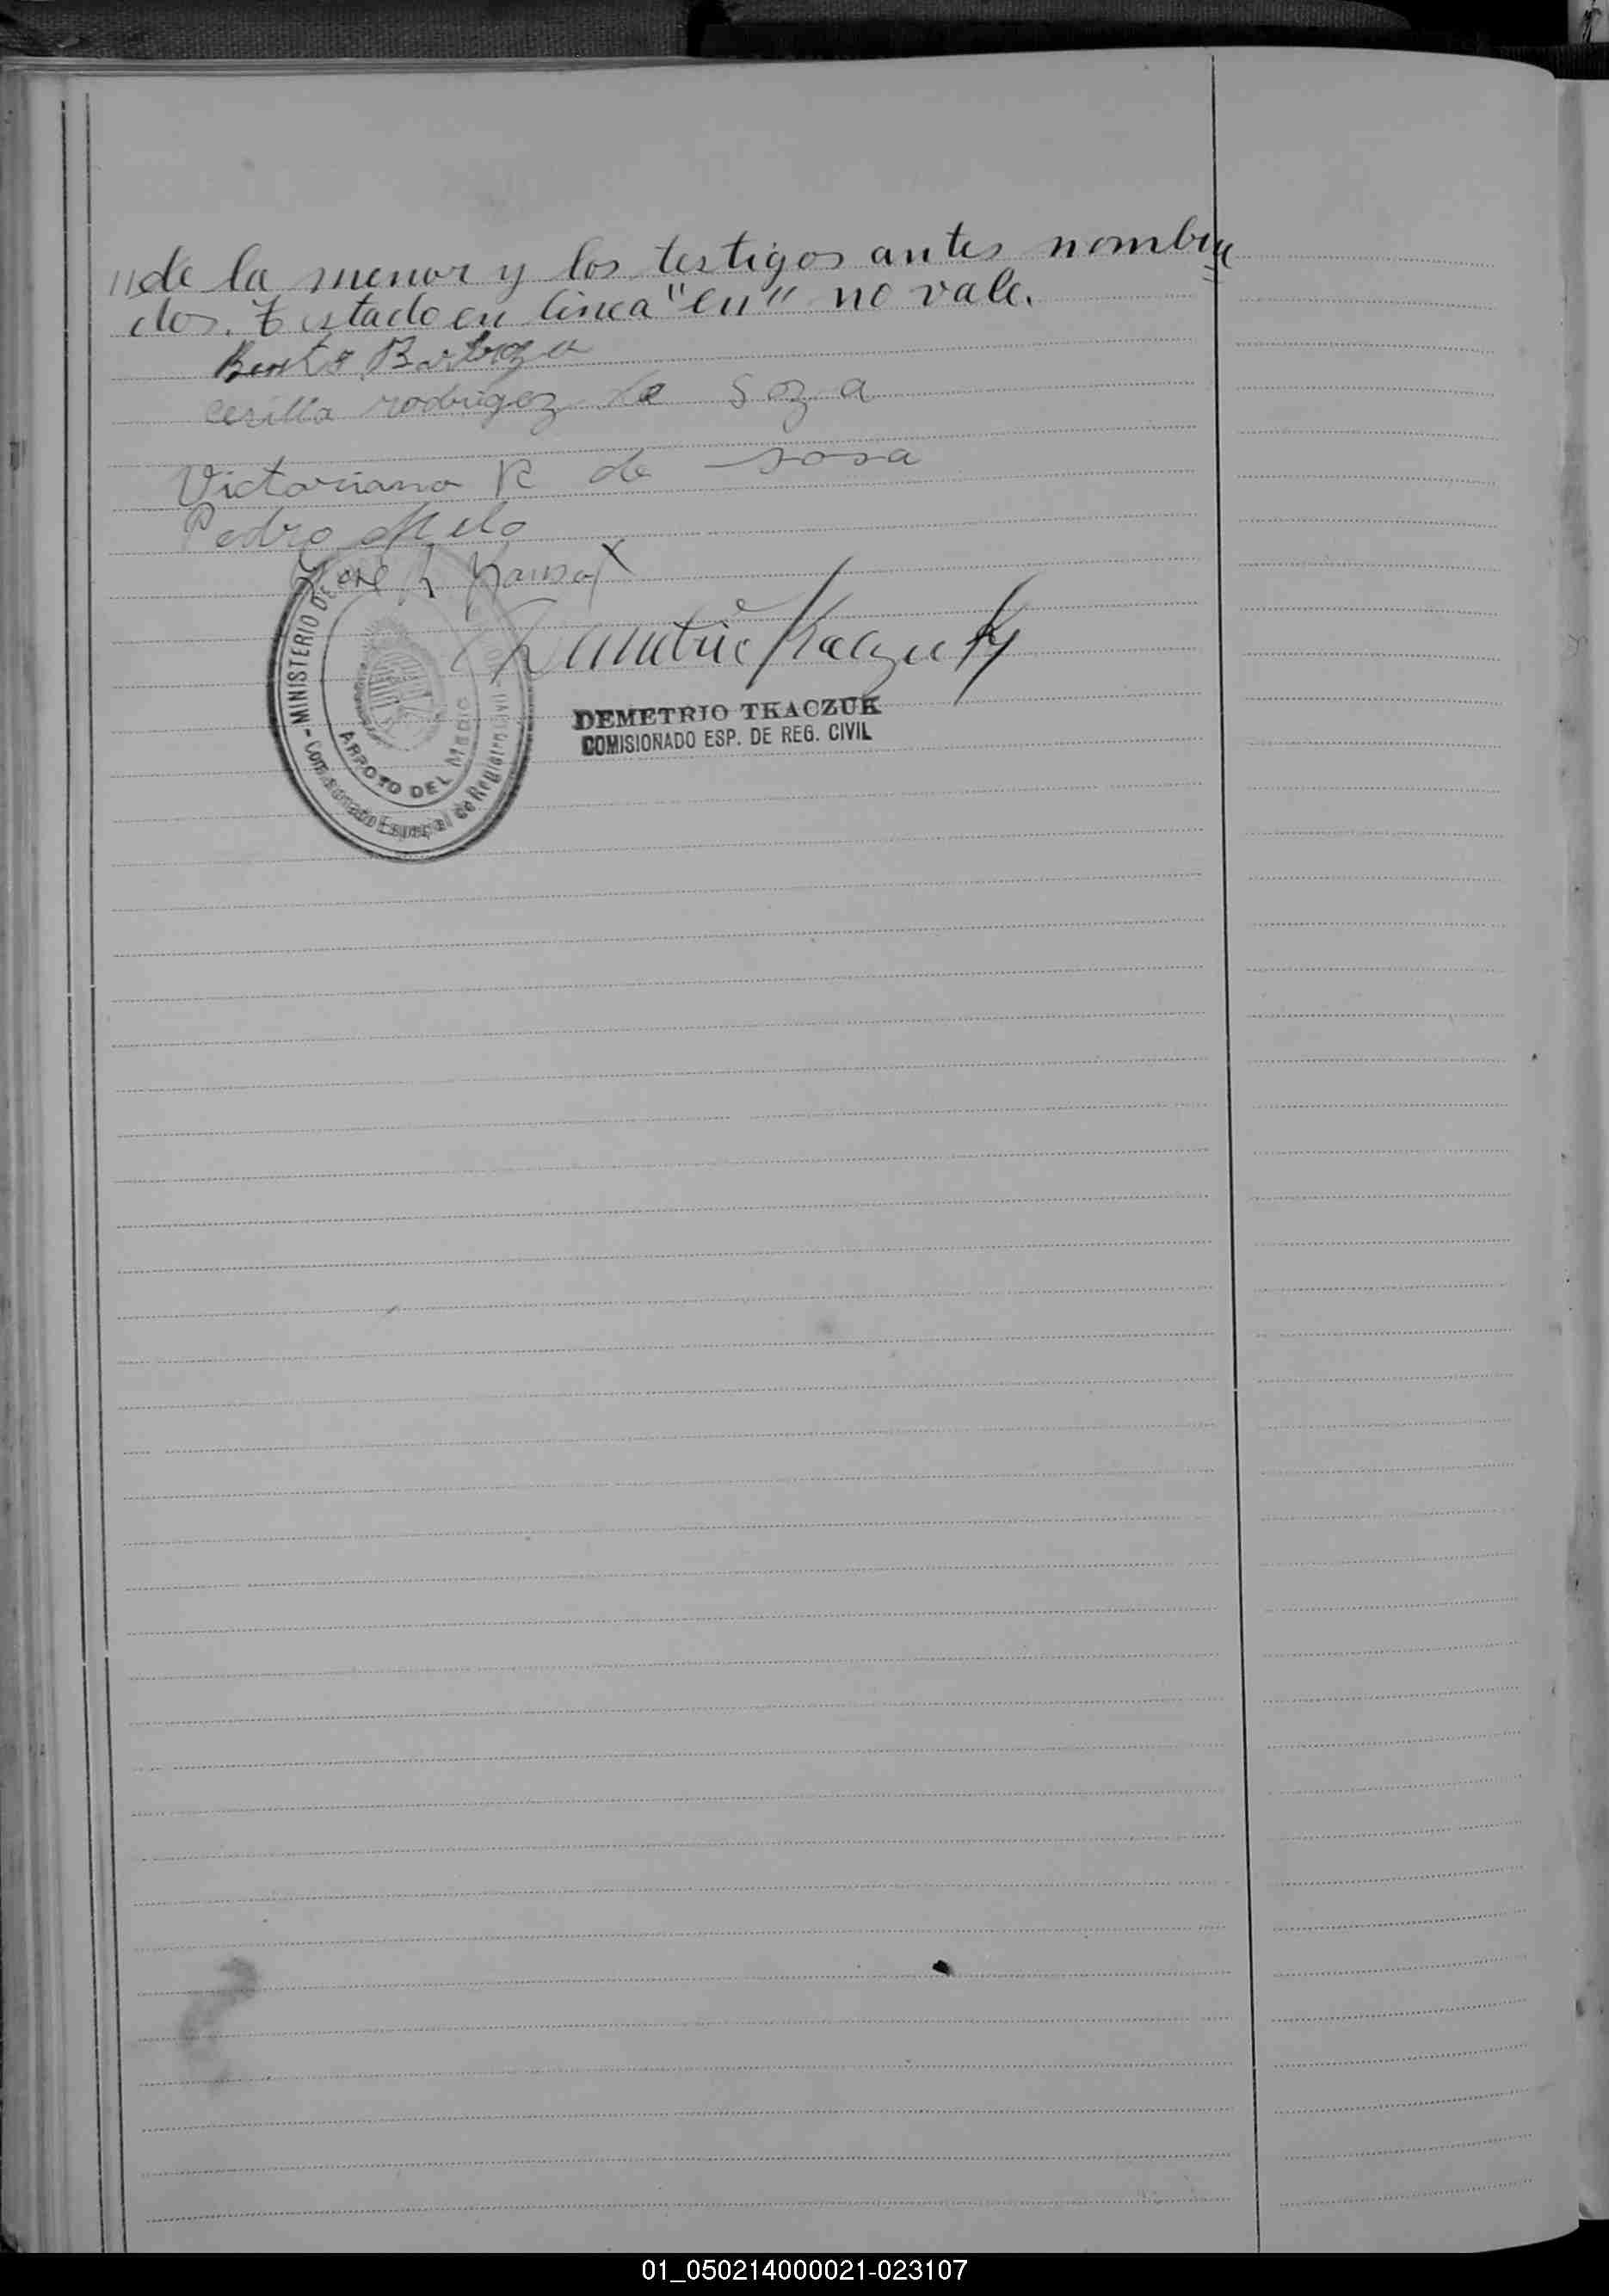 "de la menor y los testigos antes nombra
dos. Testado en linea "en" no vale.
Bento Barboza
Cerilla rodrigez de Soza
Victoriana R de sosa
Pedro Melo
Jose
Demetrio Tkaczuk
DEMETRIO TKACZUK
COMISIONADO ESP. DE REG. CIVIL
MINISTERIO DE
- Comisionado Especial de Registro Civil
ARROYO DEL MEDIO
01_050214000021-023107